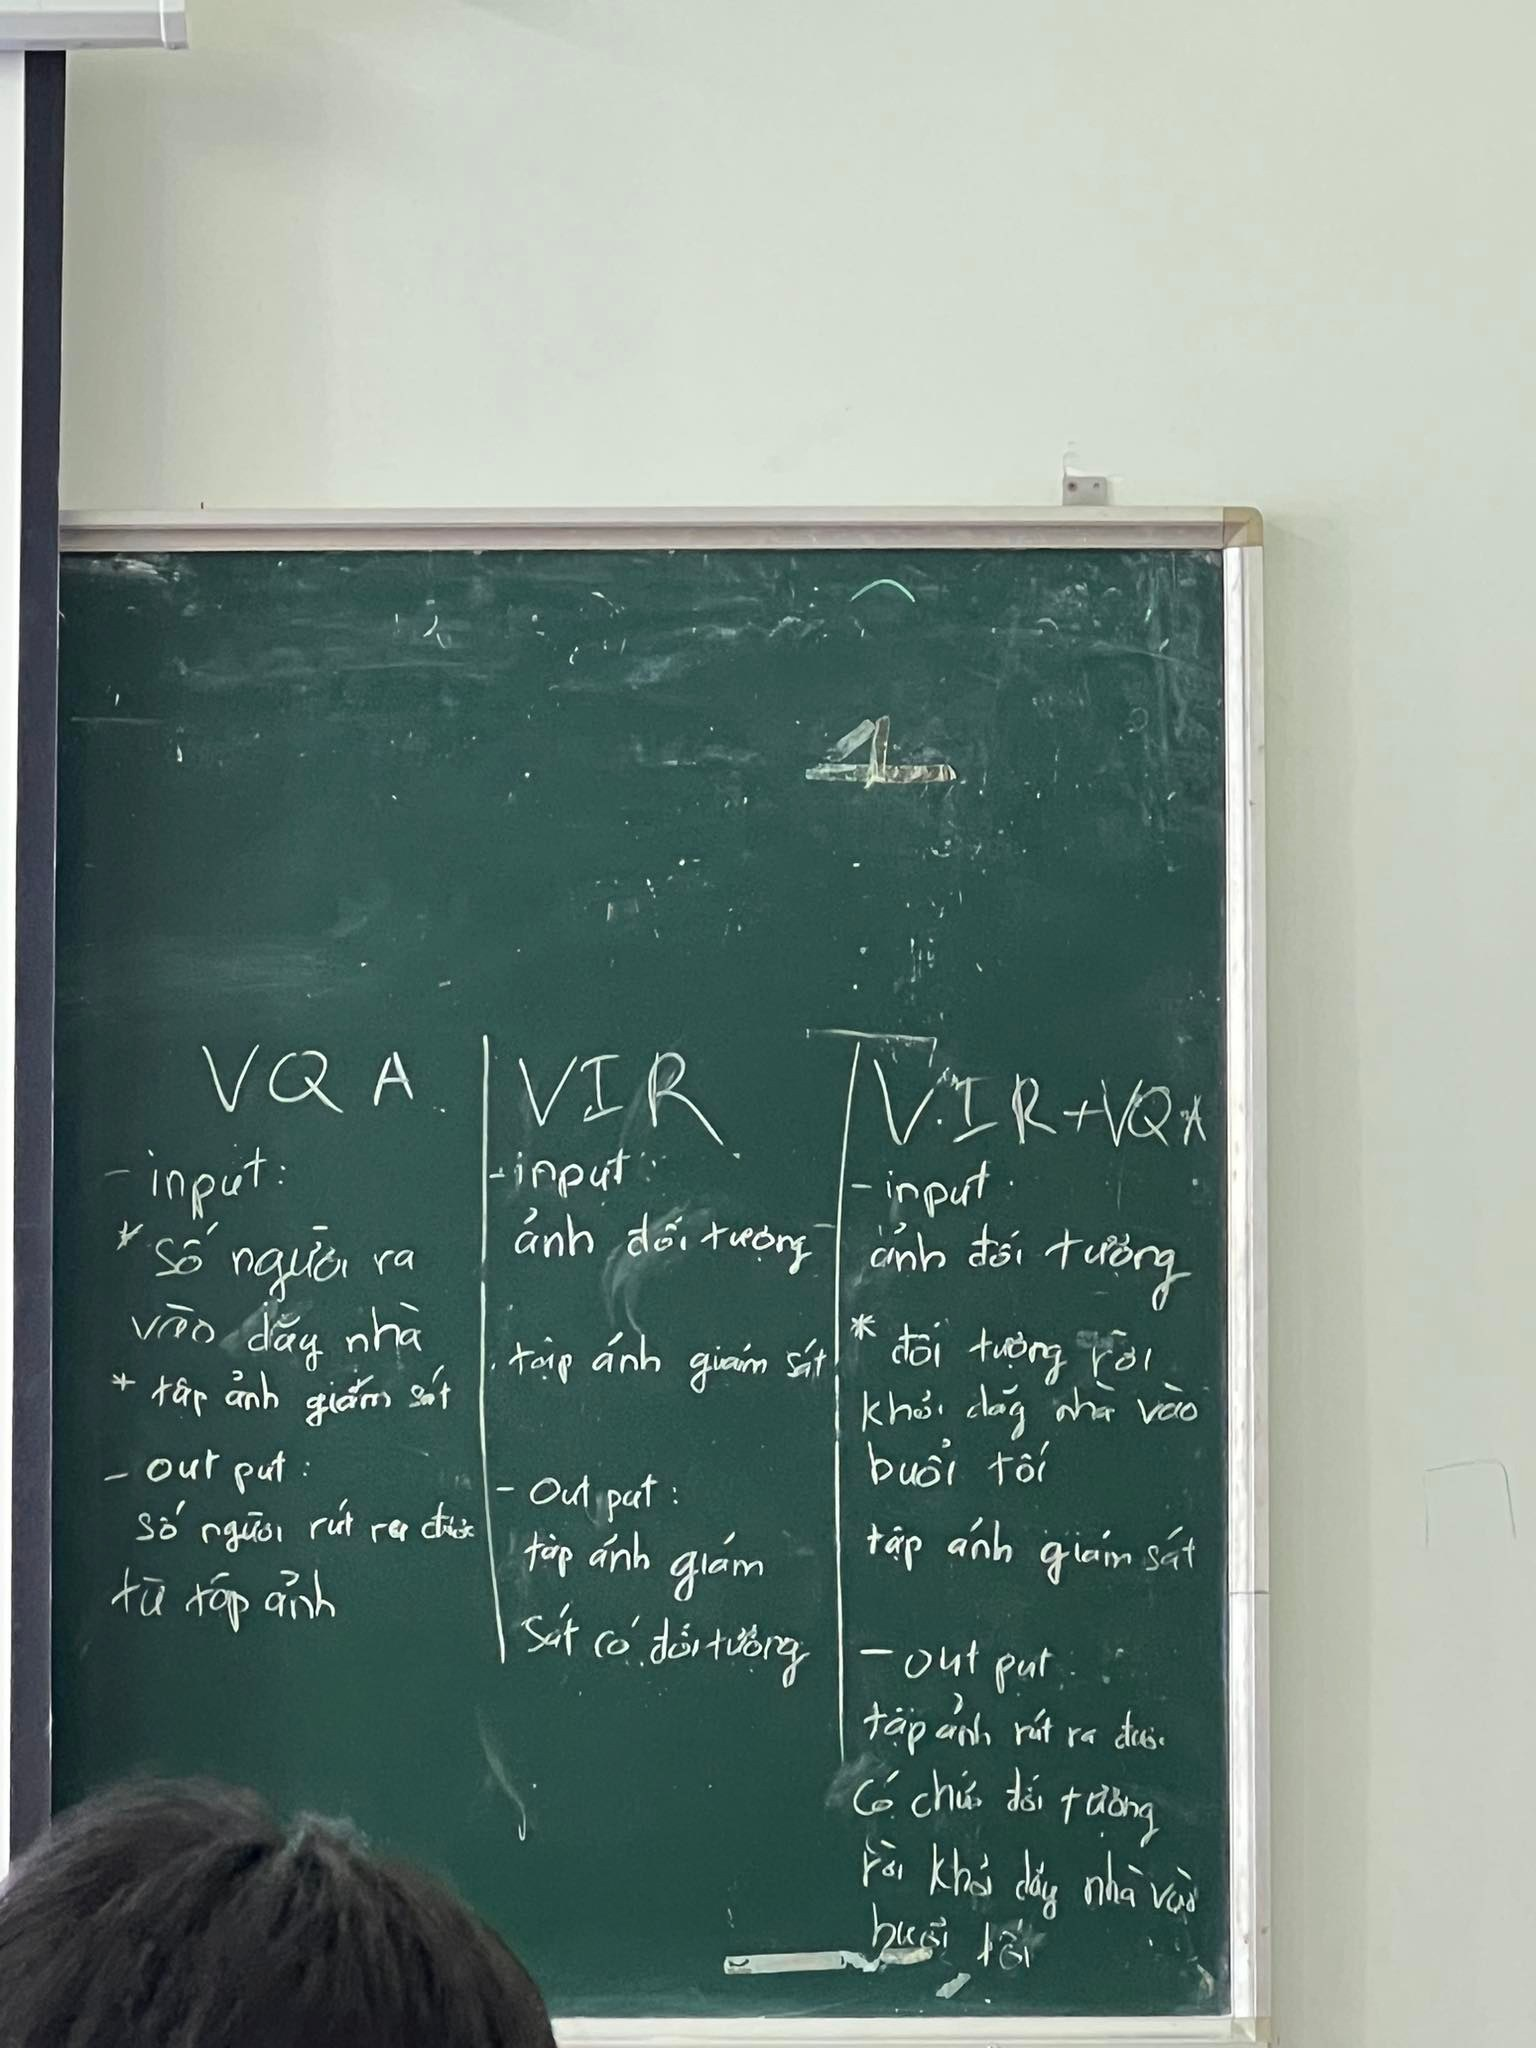 1
VQA
- input:
* số người ra
vào dãy nhà
* tập ảnh giám sát
- output:
số người rút ra được
từ tập ảnh
VIR
- input:
ảnh đối tượng
tập ảnh giám sát
- Output:
tập ảnh giám
sát có đối tượng
VIR+VQA
- input
ảnh đối tượng
* đối tượng rời
khỏi dãy nhà vào
buổi tối
tập ảnh giám sát
- output
tập ảnh rút ra được
có chứa đối tượng
rời khỏi dãy nhà vào
buổi tối